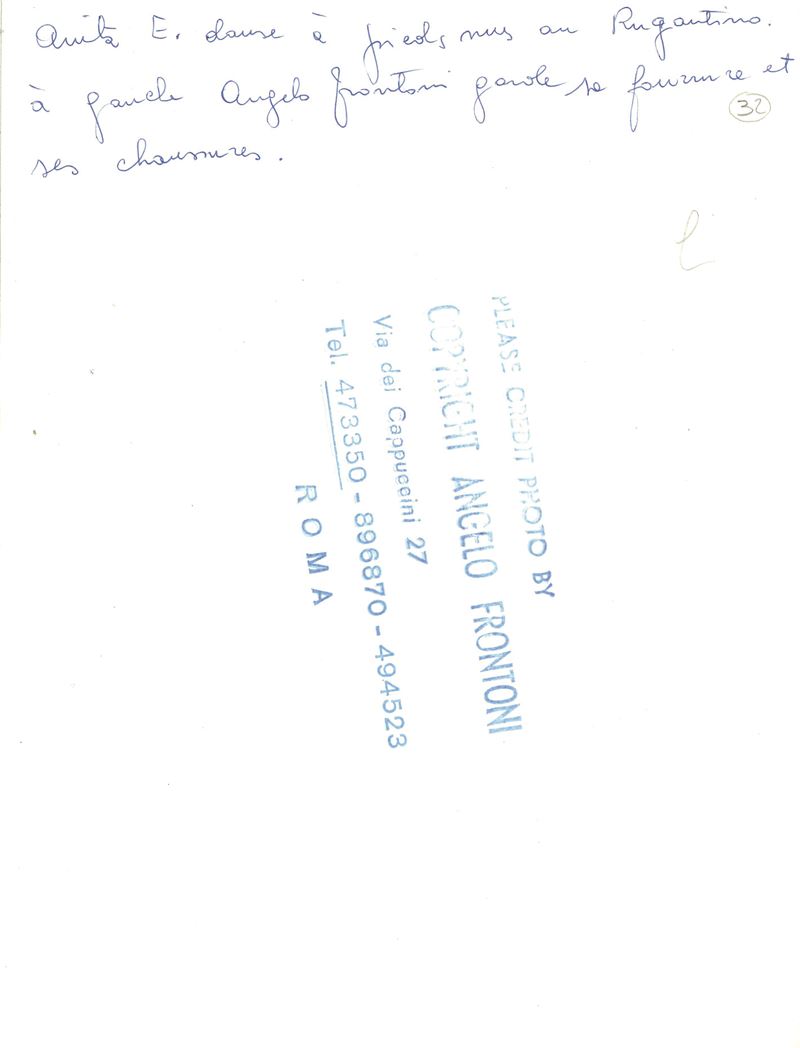 Anita E. danse à pieds nus au Rugantino.
à gauche Angelo Frontoni garde sa fourrure et
ses chaussures.
32
PLEASE CREDIT PHOTO BY
COPYRIGHT ANGELO FRONTONI
Via dei Cappuccini 27
Tel. 473350 - 896870 - 494523
ROMA